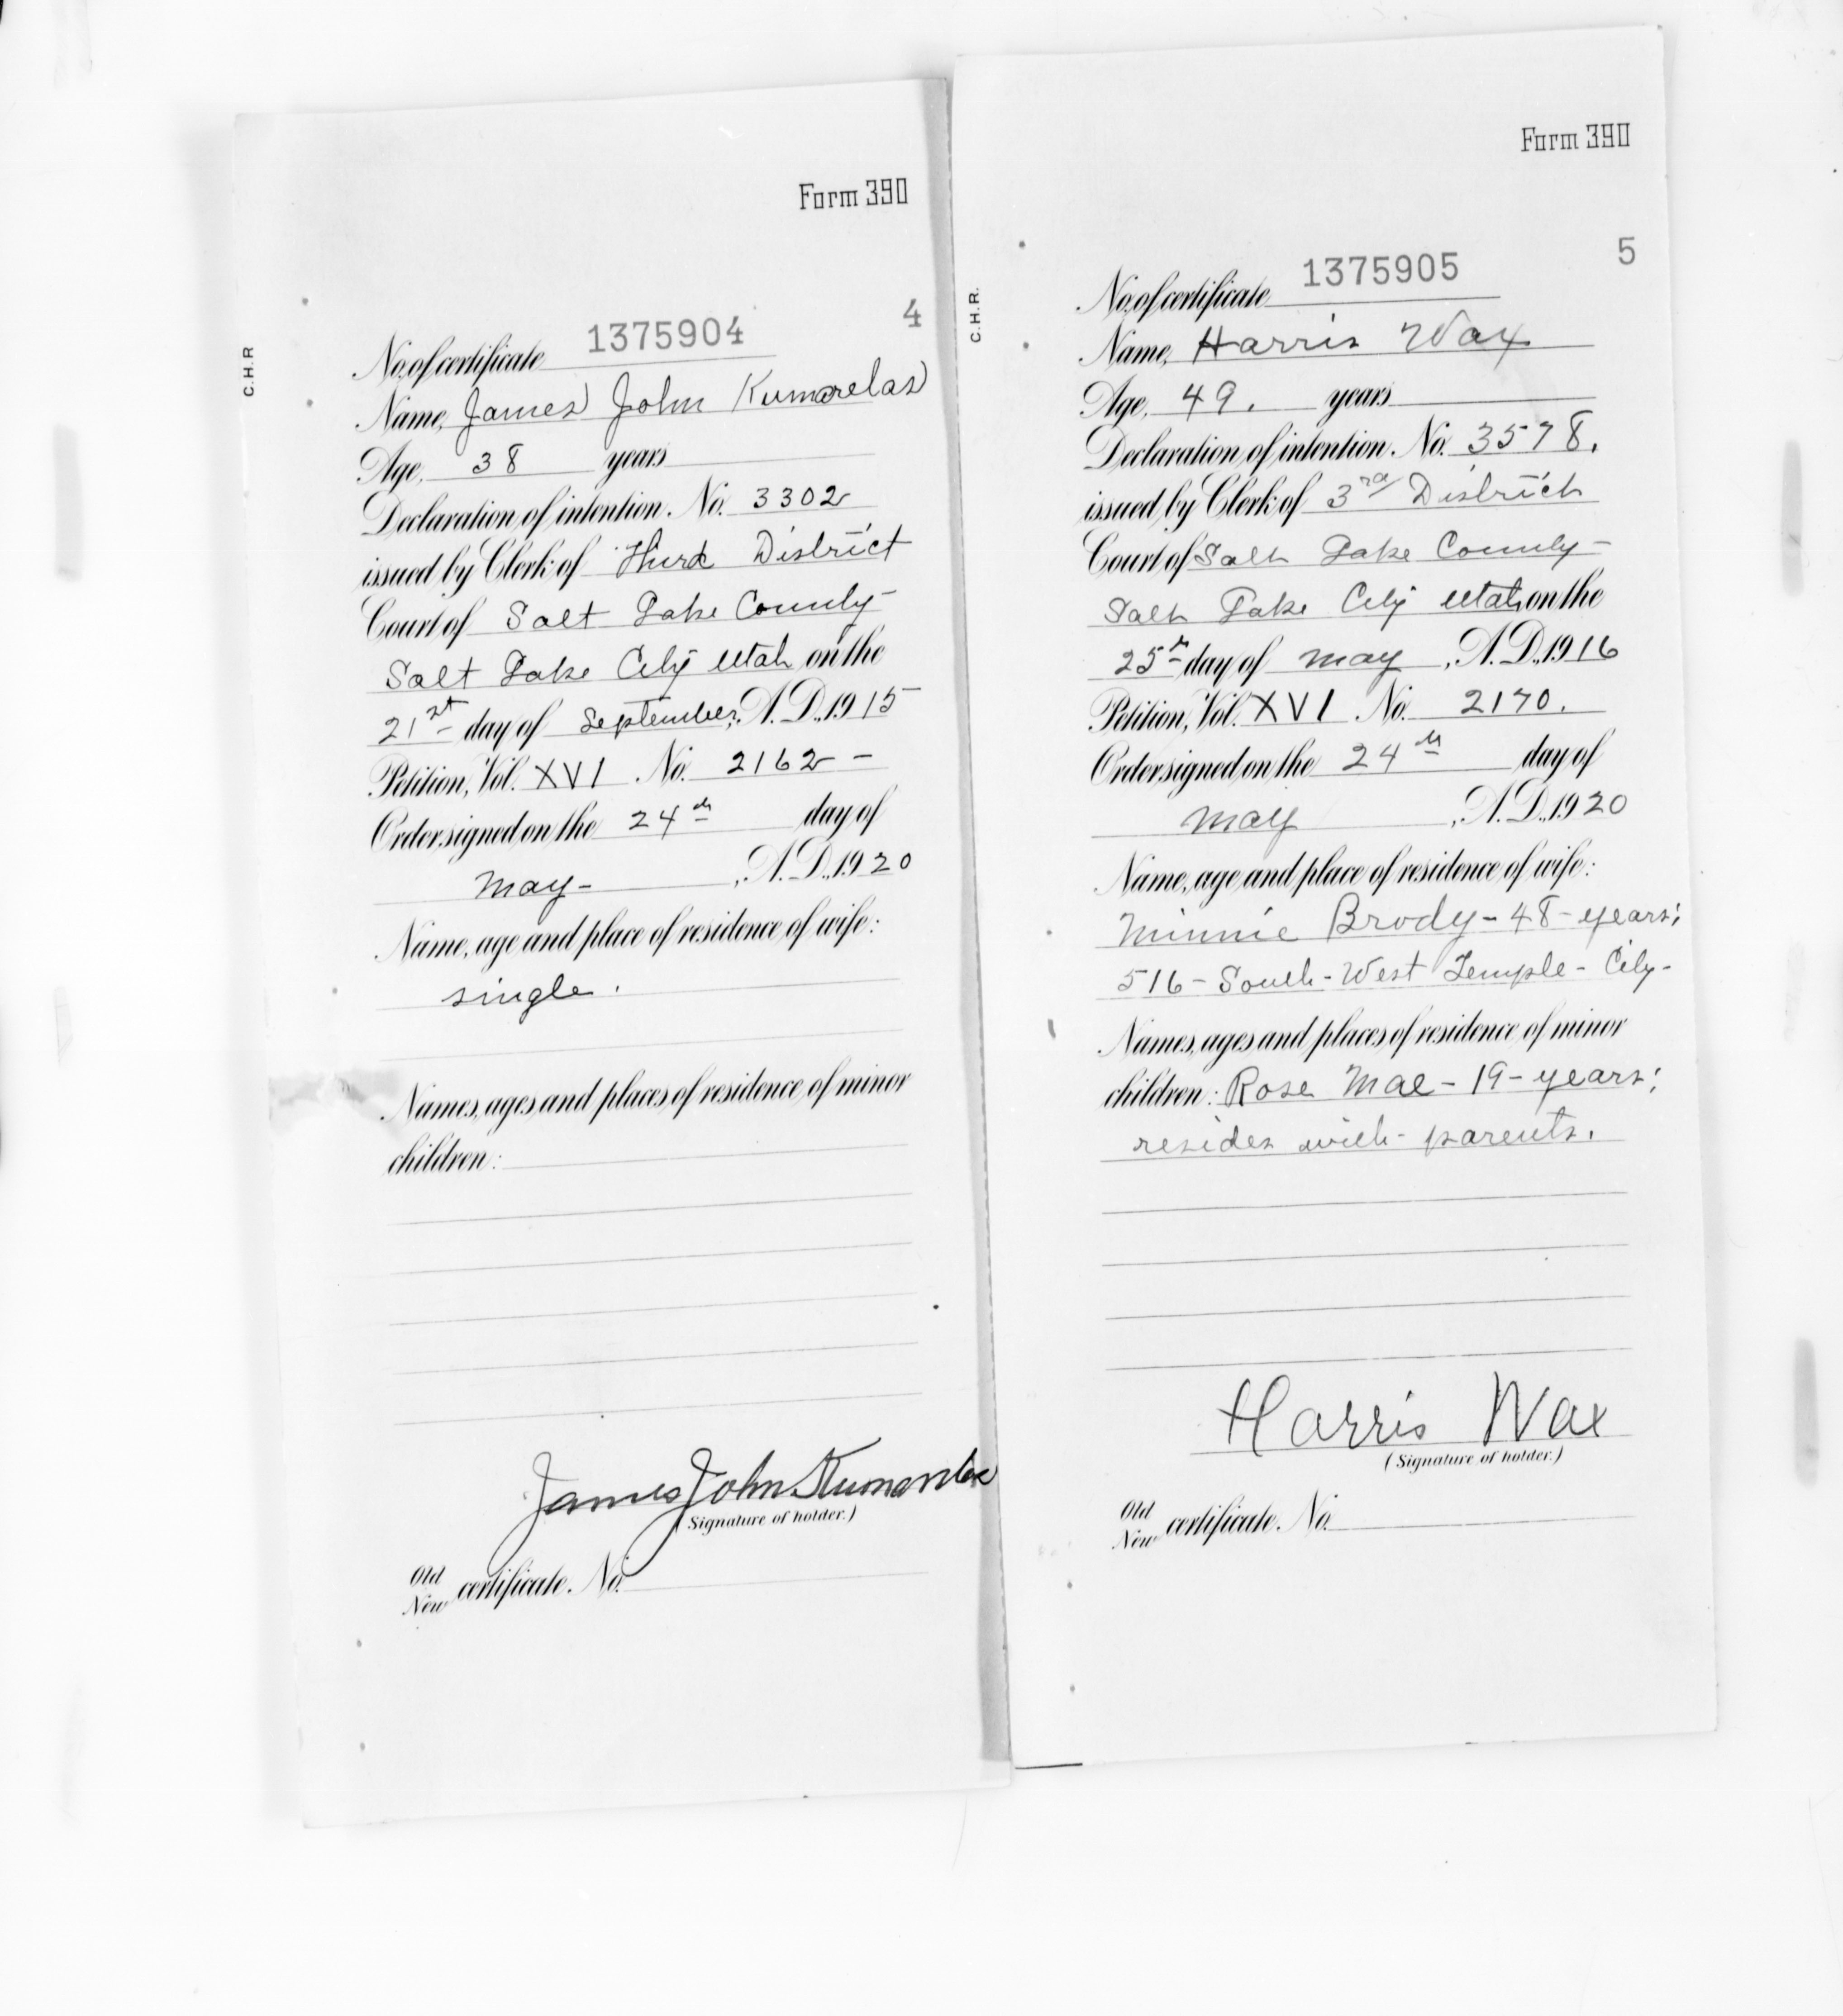 Form 390
4
C.H.R
No. of certificate 1375904
Name, James John Kumarelas
Age, 38 years
Declaration of intention. No. 3302
issued by Clerk of Third District
Court of Salt Lake County-
Salt Lake City Utah on the
21st day of September, A.D., 1915
Petition, Vol. XVI No. 2162 -
Order signed on the 24th day of
May- , A.D., 1920
Name, age and place of residence of wife:
single.
Names, ages and places of residence of minor
children:
James John Kumarelas
(Signature of holder.)
Old
New certificate. No.
Form 390
5
C.H.R.
No. of certificate 1375905
Name, Harris Wax
Age, 49. years
Declaration of intention. No. 3578.
issued by Clerk of 3rd District
Court of Salt Lake County-
Salt Lake City Utah, on the
25th day of May , A.D., 1916
Petition, Vol. XVI No. 2170.
Order signed on the 24th day of
May , A.D., 1920
Name, age and place of residence of wife:
Minnie Brody - 48 - years;
516 - South - West Temple - City -
Names, ages and places of residence of minor
children: Rose Mae - 19 - years;
resides with - parents.
Harris Wax
(Signature of holder.)
Old
New certificate. No.